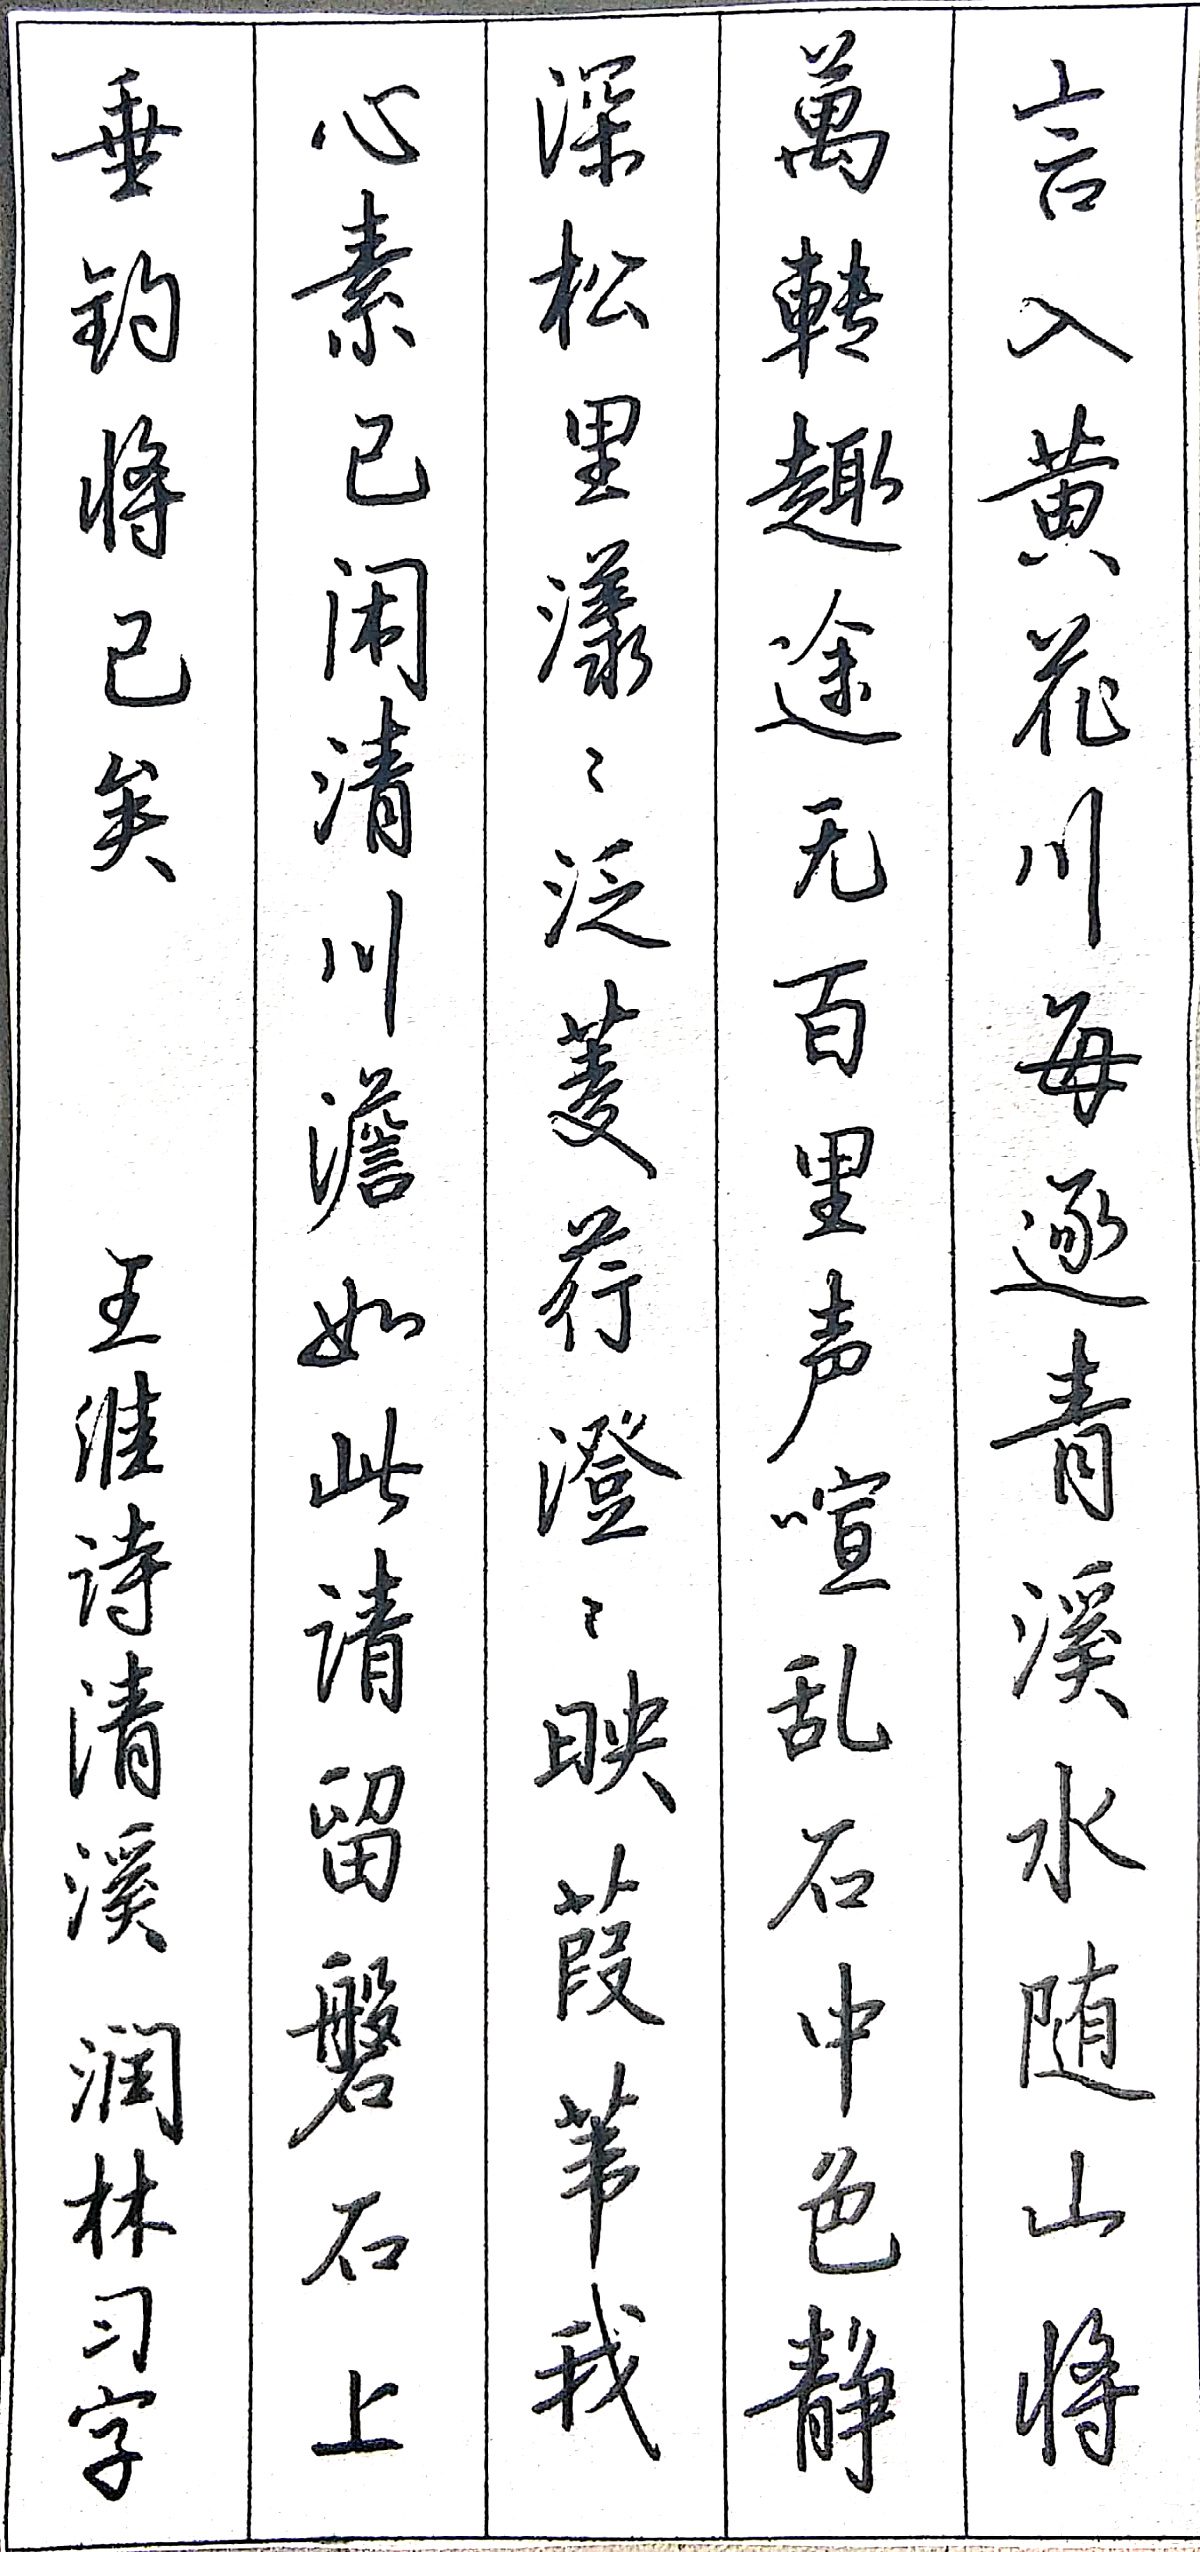 言入黄花川每逐青溪水随山将
萬轉趣途无百里声喧乱石中色静
深松里漾〻泛菱荇澄〻映葭苇我
心素已闲清川澹如此请留磐石上
垂钓将已矣 王维诗清溪 润林习字